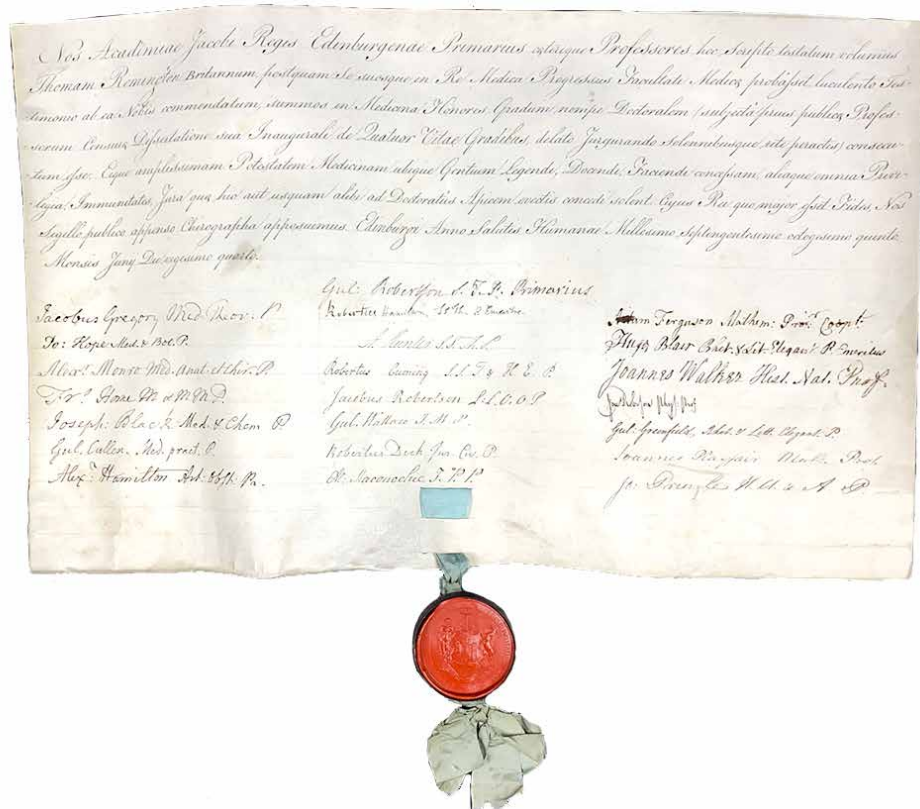 Nos Academiae Jacobi Regis Edinburgenae Primarius caeterique Professores hoc Scripto testatum volumus
Thomam Remington Britannum, postquam Se suosque in Re Medica Progressus Facultati Medicæ probasset luculento Tes-
timonio ab ea Nobis commendatum, summos in Medicina Honores Gradum nempe Doctoralem (subjecta prius publicæ Profes-
sorum Censuræ Disputatione sua Inaugurali de Quatuor Vitae Gradibus, delato Jurejurando solennibusque rite peractis) consecu-
tum esse. Eique amplissimam Potestatem Medicinam ubique Gentium Legendi, Docendi, Faciendi concessam, aliaque omnia Privi-
legia, Immunitates, Jura quæ hic aut usquam alibi ad Doctoratus Apicem evectis concedi solent. Cujus Rei quo major esset Fides, Nos
Sigillo publico appenso Chirographa apposuimus. Edinburgi Anno Salutis Humanae Millesimo, Septengentesimo octogesimo quinto
Mensis Junij Die vigesimo quarto.
Gul. Robertson S. T. P. Primarius
Jacobus Gregory Med. Theor. P.
Jo: Hope Med. & Bot. P.
Alexr. Monro Med. Anat. et Chir. P.
Frs. Home M
Joseph: Black Med. & Chem P
Gul. Cullen. Med. pract. P.
Alexr. Hamilton Art. Obst. P.
Robertus Hamilton
Robertus Cuming S. S. T. & H. E. P.
Jacobus Robertson L. L. O. O P
Gul. Wallace
Robertus Dick Jur. Civ. P.
Al: Maconochie J. P. P.
Adam Ferguson Mathem: Prof. Conjt.
Hugo Blair Rhet. & Lit. Elegant. P. Emeritus
Joannes Walker Hist. Nat. Prof.
Gul: Greenfield, Rhet. & Litt. Elegant. P.
Joannes Playfair Math. Prof.
Ja: Pringle H. U. & A P